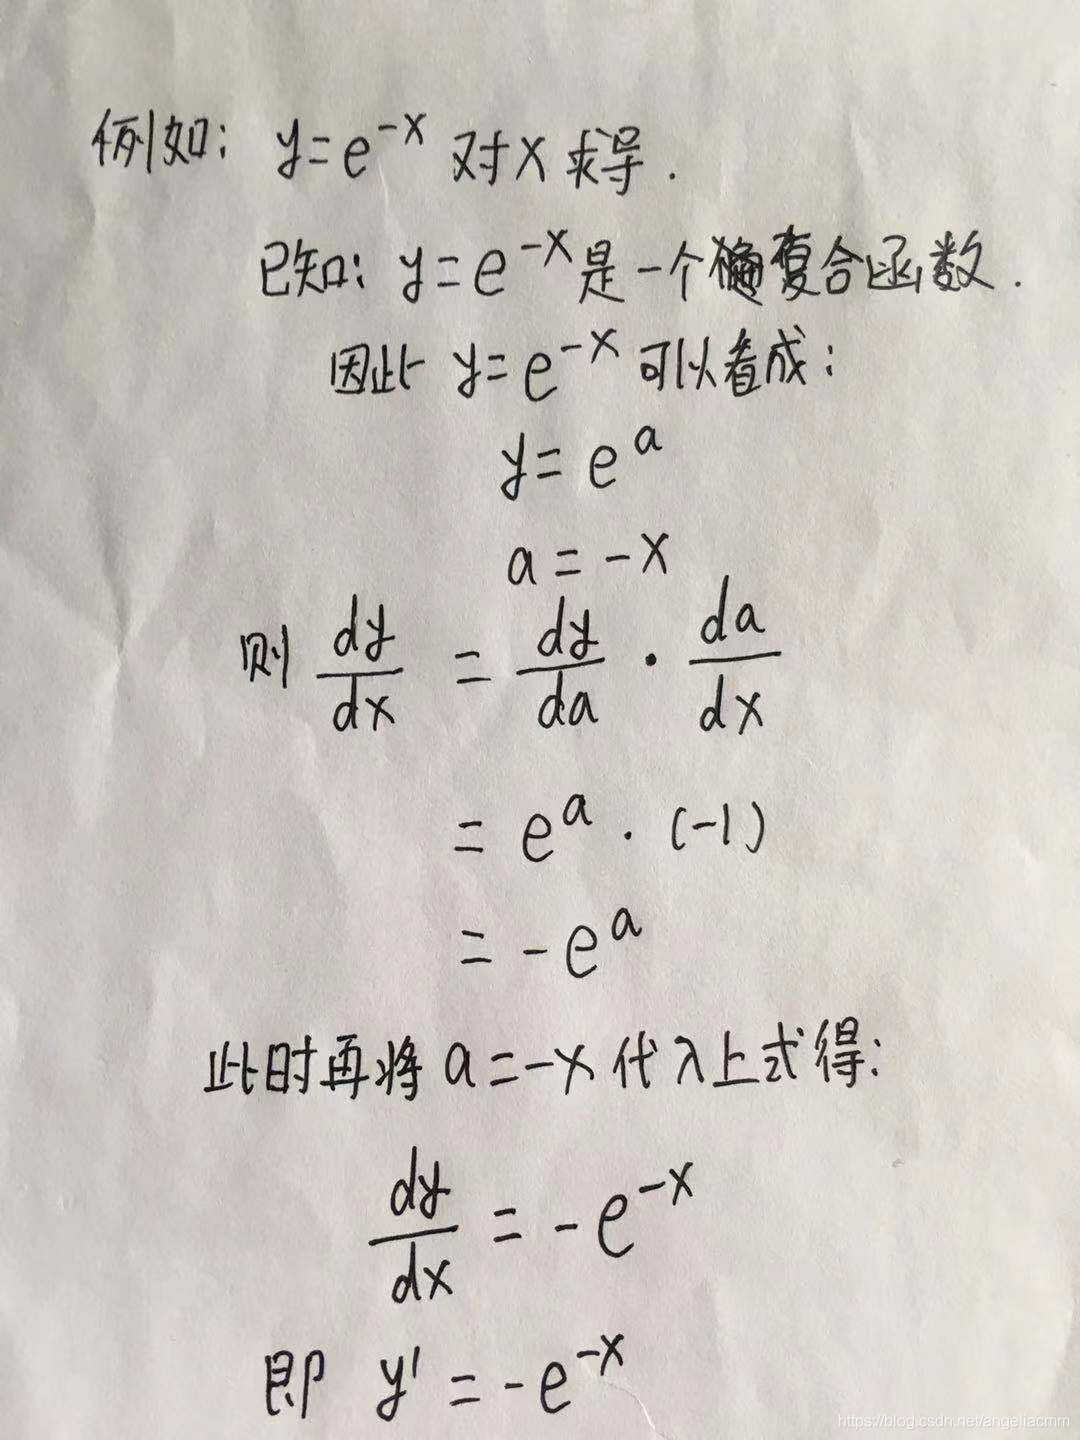 例如: y=e^{-x} 对x求导.
已知: y=e^{-x}是一个复合函数.
因此 y=e^{-x} 可以看成:
y=e^a
a=-x
则 dy/dx = dy/da · da/dx
= e^a · (-1)
= -e^a
此时再将 a=-x 代入上式得:
dy/dx = -e^{-x}
即 y' = -e^{-x}
https://blog.csdn.net/angeliacmm